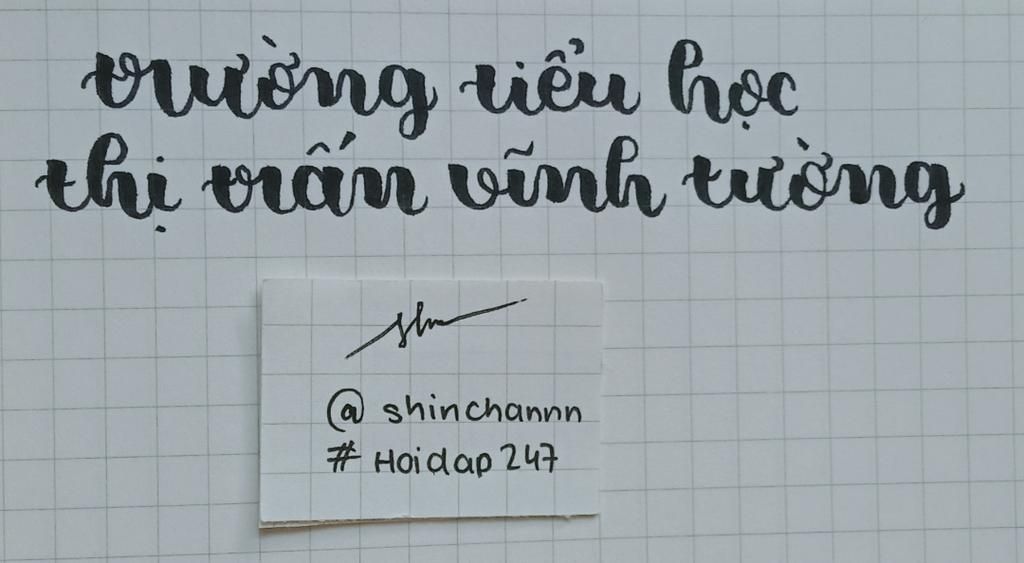 trường tiểu học
thị trấn vĩnh tường
@shinchannn
#Hoidap247